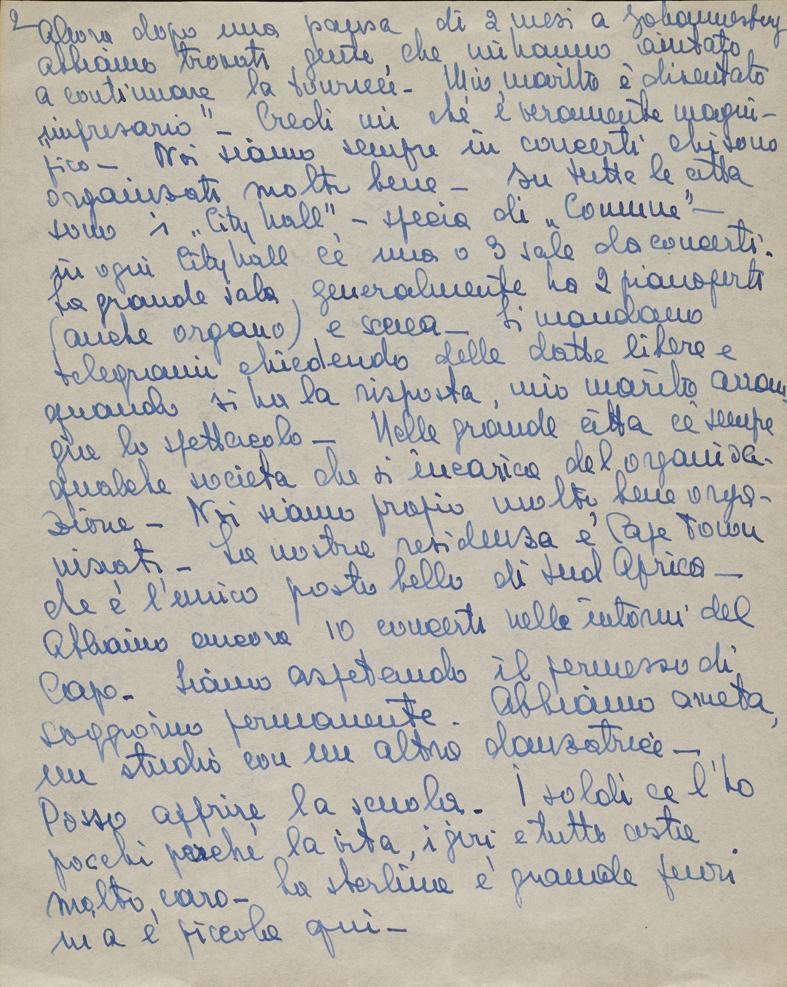 2 Allora dopo una pausa di 2 mesi a Johannesburg
abbiamo trovati gente, che mi hanno aiutato
a continuare la tourneè - Mio marito è diventato
„impresario" - Credi mi chè è veramente magni-
fico - Noi siamo sempre in concerti chi sono
organisati molti bene - Su tutte le citta
sono i „City hall" - specia di „Comune" -
in ogni City hall cè una o 3 sale da concerti.
La grande sala, generalmente ha 2 pianoforti
(anche organo) e scena - Si mandano
telegrami chiedendo delle datte libere e
quando si ha la risposta, mio marito arran
gia lo spettacolo - Nelle grande città cè sempe
qualche societa che si incarica del organisa-
zione - Noi siamo propio molti bene orga-
nisati - La nostra residenza è Cape Town
che è l'unico posto bello di Sud Africa -
Abbiamo ancora 10 concerti nelle intorni del
Cap - Siamo aspetando il permesso di
soggiorno permanente. Abbiamo a meta,
un studio con un altra danzatrice -
Posso affrire la scuola - I soldi ce l'ho
pocchi perchè la vita, i giri e tutto costa
molto, caro - La sterlina è grande fuori
ma è piccola qui -